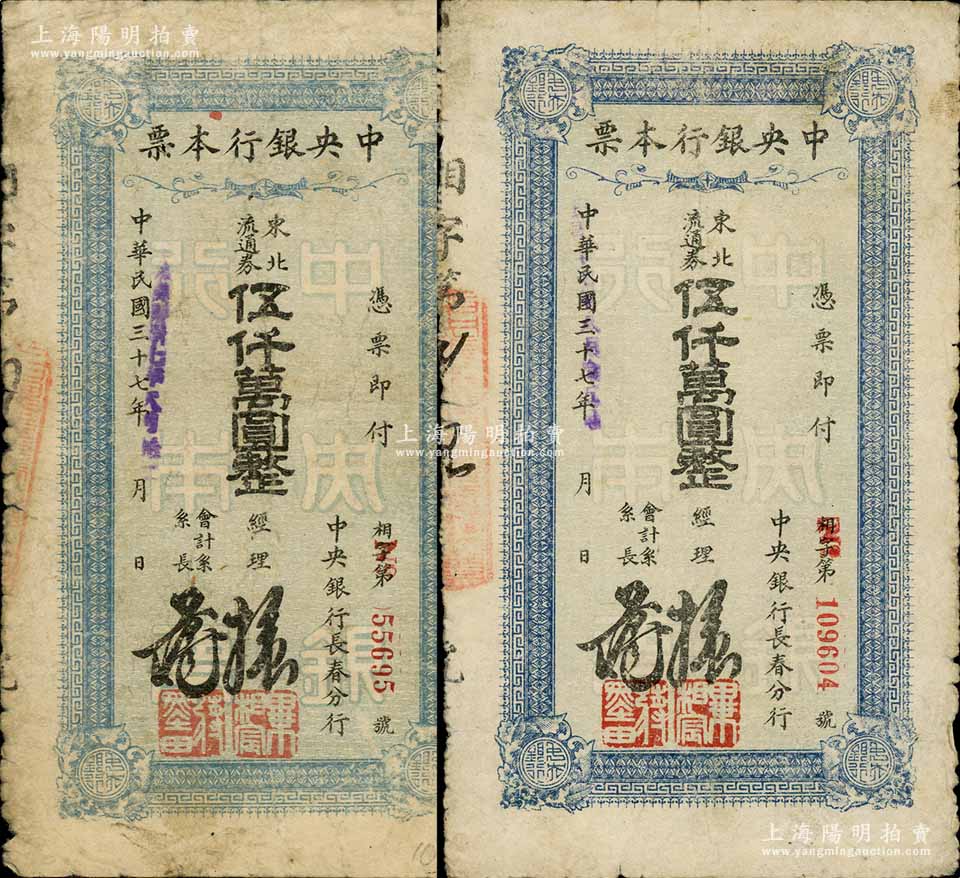 上海陽明拍賣
www.yangmingauction.com
中央銀行本票
憑票即付
東北
流通券
伍仟萬圓整
中華民國三十七年 月 日
中央銀行長春分行
經理
會計系
系長
相字第 55695 號
上海陽明拍賣
www.yangmingauction.com
中央銀行本票
憑票即付
東北
流通券
伍仟萬圓整
中華民國三十七年 月 日
中央銀行長春分行
經理
會計系
系長
相字第 109604 號
相字第
上海陽明拍賣
www.yangmingauction.com